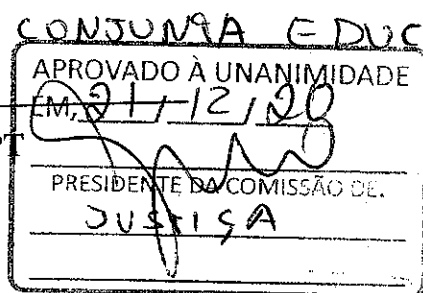 CONJUNTA EDUC
APROVADO À UNANIMIDADE
EM, 21/12/20
T
PRESIDENTE DA COMISSÃO DE.
JUSTIÇA